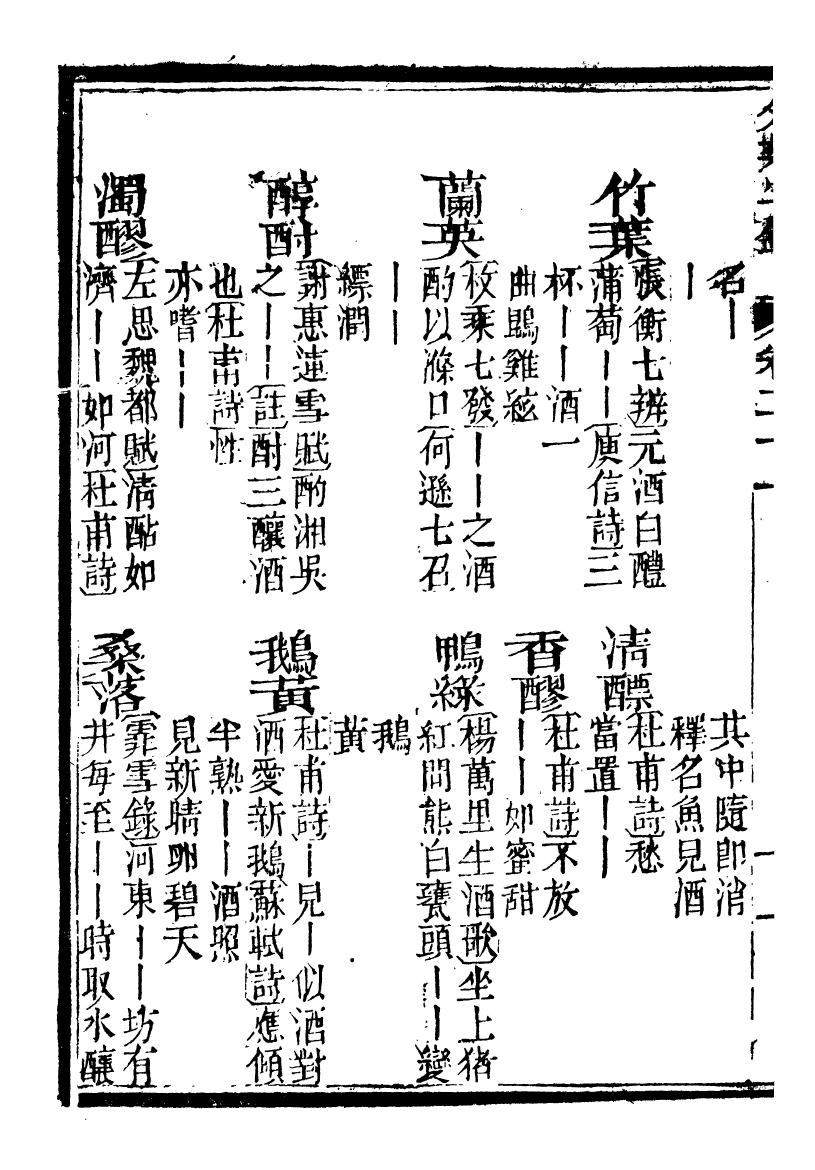 卷二十一
名丨
丨
共中隨卽消
釋名魚見酒
竹葉
張衡七辨元酒白醴
蒲萄丨丨庾信詩三
杯丨丨酒一
曲鵾雞絃
清醥
杜甫詩愁
當置丨丨
香醪
杜甫詩不放
丨丨如蜜甜
蘭英
枚乗七發丨丨之酒
酌以滌口何遜七召
丨丨
縹澗
鴨綠
楊萬里生酒歌坐上猪
紅問熊白甕頭丨丨變
鵝
黃
醇酎
謝惠連雪賦酌湘吳
之丨丨註酎三釀酒
也杜甫詩性
亦嗜丨丨
鵝黃
杜甫詩丨見丨似酒對
酒愛新鵝蘇軾詩應傾
半熟丨丨酒照
見新晴卵碧天
濁醪
左思魏都賦清酤如
濟丨丨如河杜甫詩
桑落
霏雪錄河東丨丨坊有
井每至丨丨時取水釀